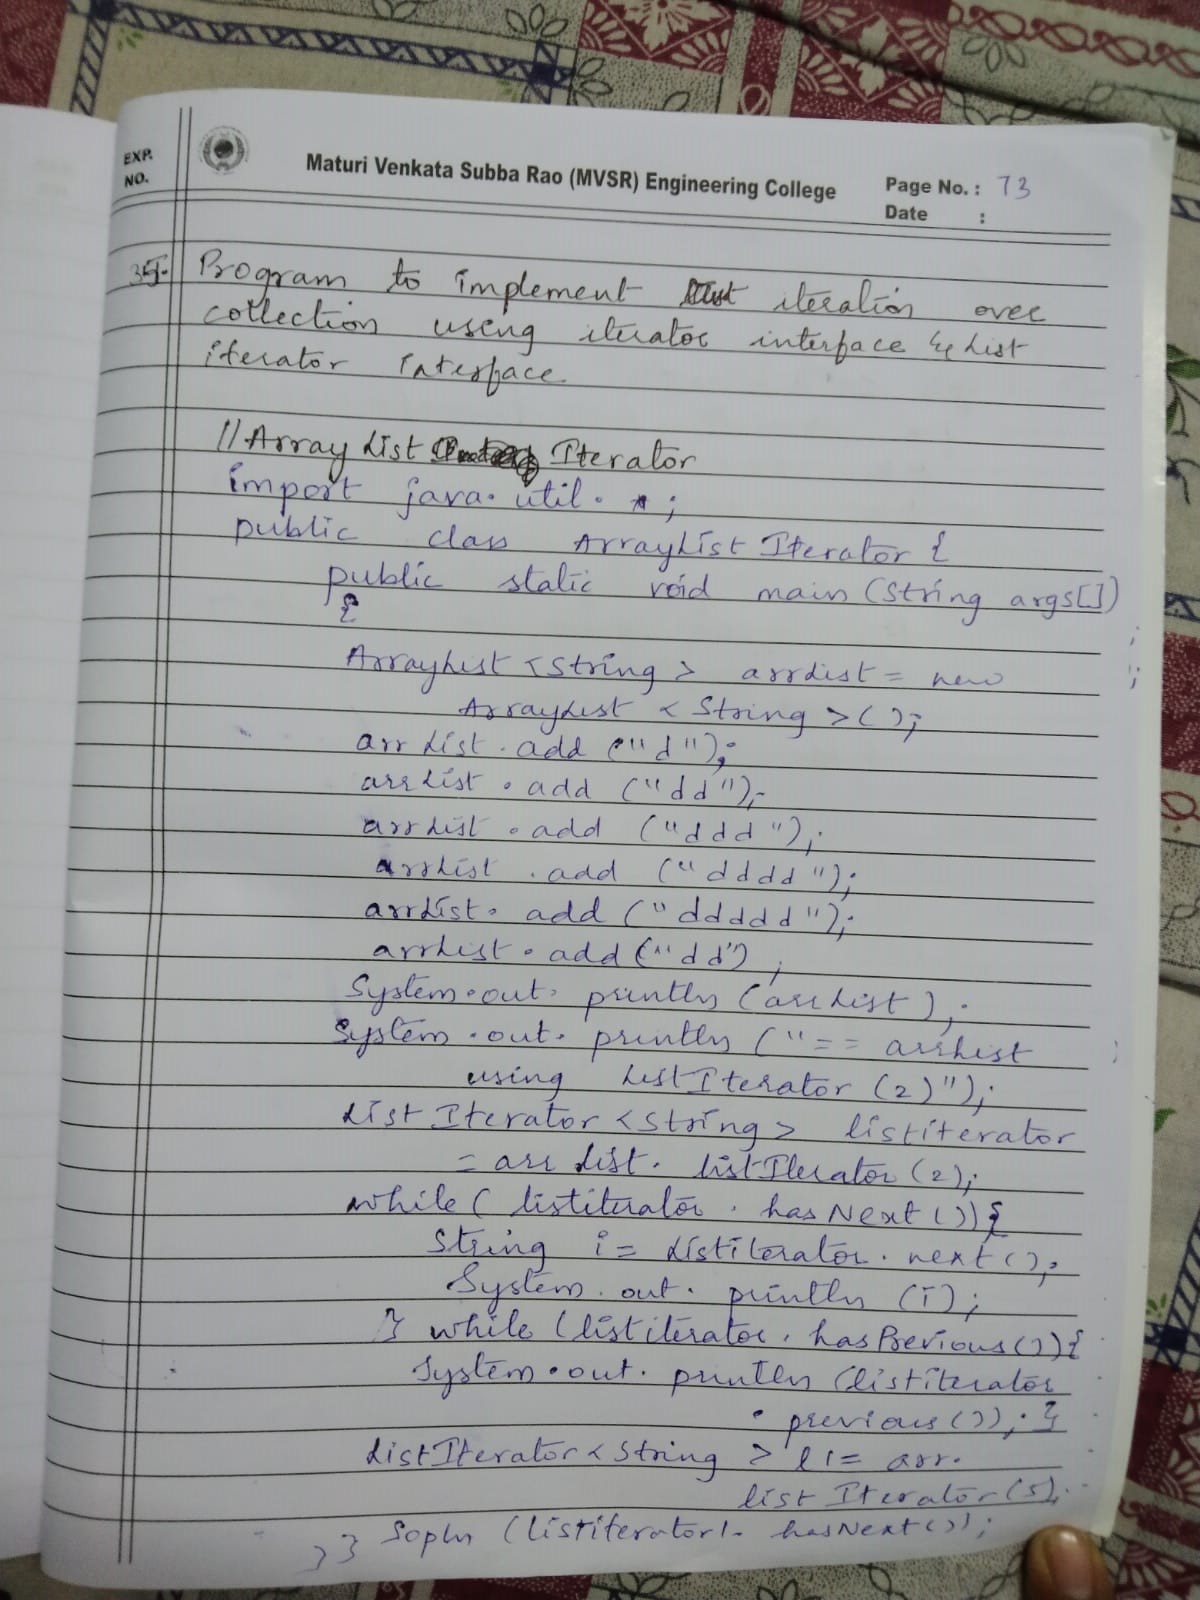 EXP.
NO.
Maturi Venkata Subba Rao (MVSR) Engineering College
Page No. : 73
Date :
35. Program to implement iteration over
collection using iterator interface & List
iterator interface
//ArrayList Iterator
import java.util.*;
public class ArrayListIterator {
public static void main (String args[])
{
ArrayList <String> arrList = new
ArrayList <String>();
arrList.add ("d");
arrList.add ("dd");
arrList.add ("ddd");
arrList.add ("dddd");
arrList.add ("ddddd");
arrList.add ("dd") ;
System.out.println (arrList);
System.out.println ("== arrList
using ListIterator (2)");
ListIterator <String> listiterator
= arrList.listIterator (2);
while ( listiterator.hasNext ()) {
String i = listiterator.next ();
System.out.println (i);
} while (listiterator.hasPrevious()) {
System.out.println (listiterator
.previous ()); }
ListIterator <String> l1 = arr.
listIterator (5);
}} Sopln (listiterator1.hasNext());